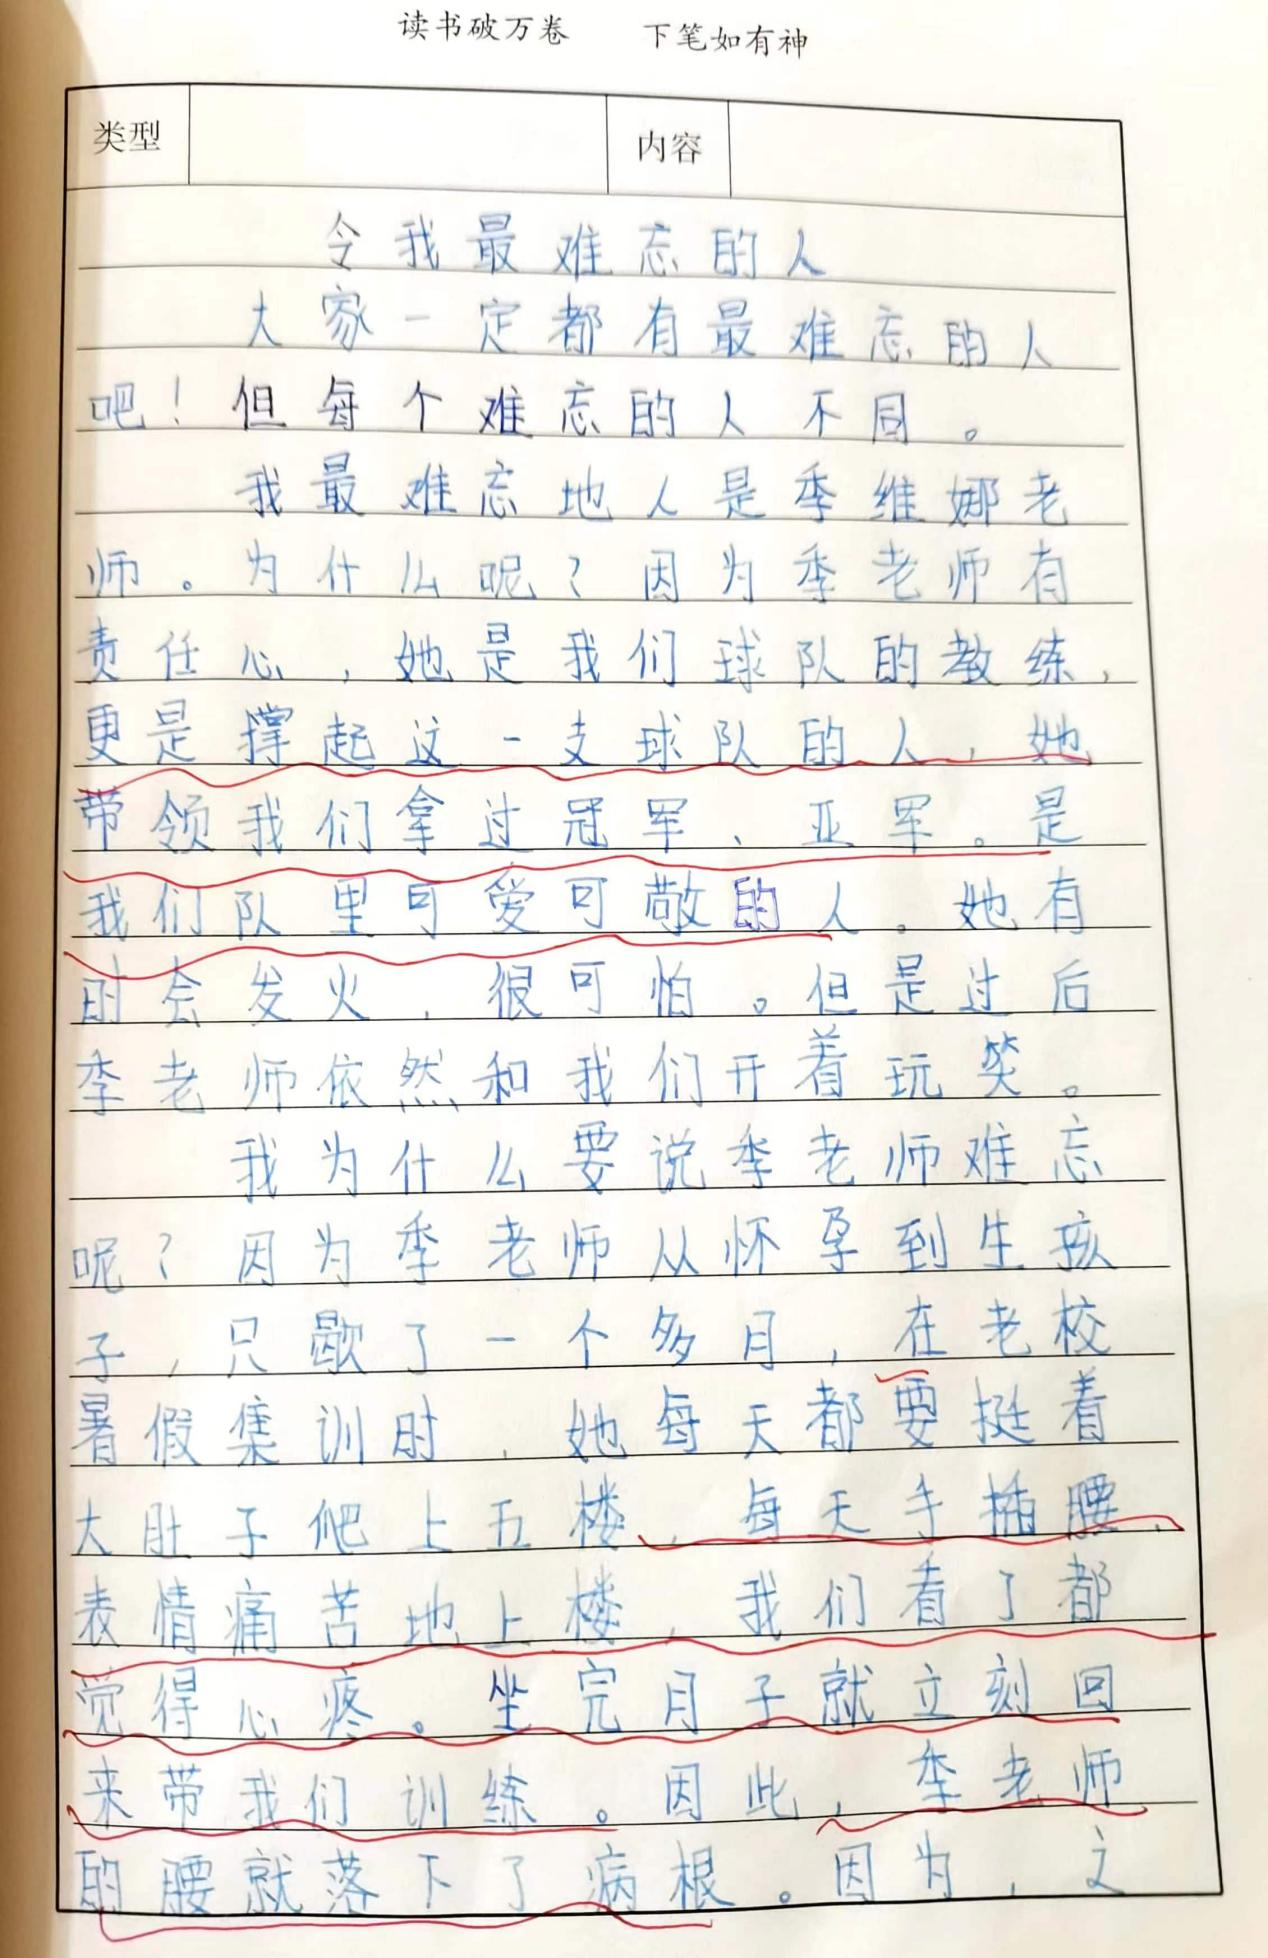 读书破万卷 下笔如有神
类型 内容
令我最难忘的人
大家一定都有最难忘的人
吧！但每个难忘的人不同。
我最难忘地人是季维娜老
师。为什么呢？因为季老师有
责任心，她是我们球队的教练，
更是撑起这一支球队的人，她
带领我们拿过冠军、亚军。是
我们队里可爱可敬的人。她有
时会发火，很可怕。但是过后
季老师依然和我们开着玩笑。
我为什么要说季老师难忘
呢？因为季老师从怀孕到生孩
子，只歇了一个多月，在老校
暑假集训时，她每天都要挺着
大肚子爬上五楼，每天手插腰，
表情痛苦地上楼，我们看了都
觉得心疼。坐完月子就立刻回
来带我们训练。因此，季老师
的腰就落下了病根。因为，之